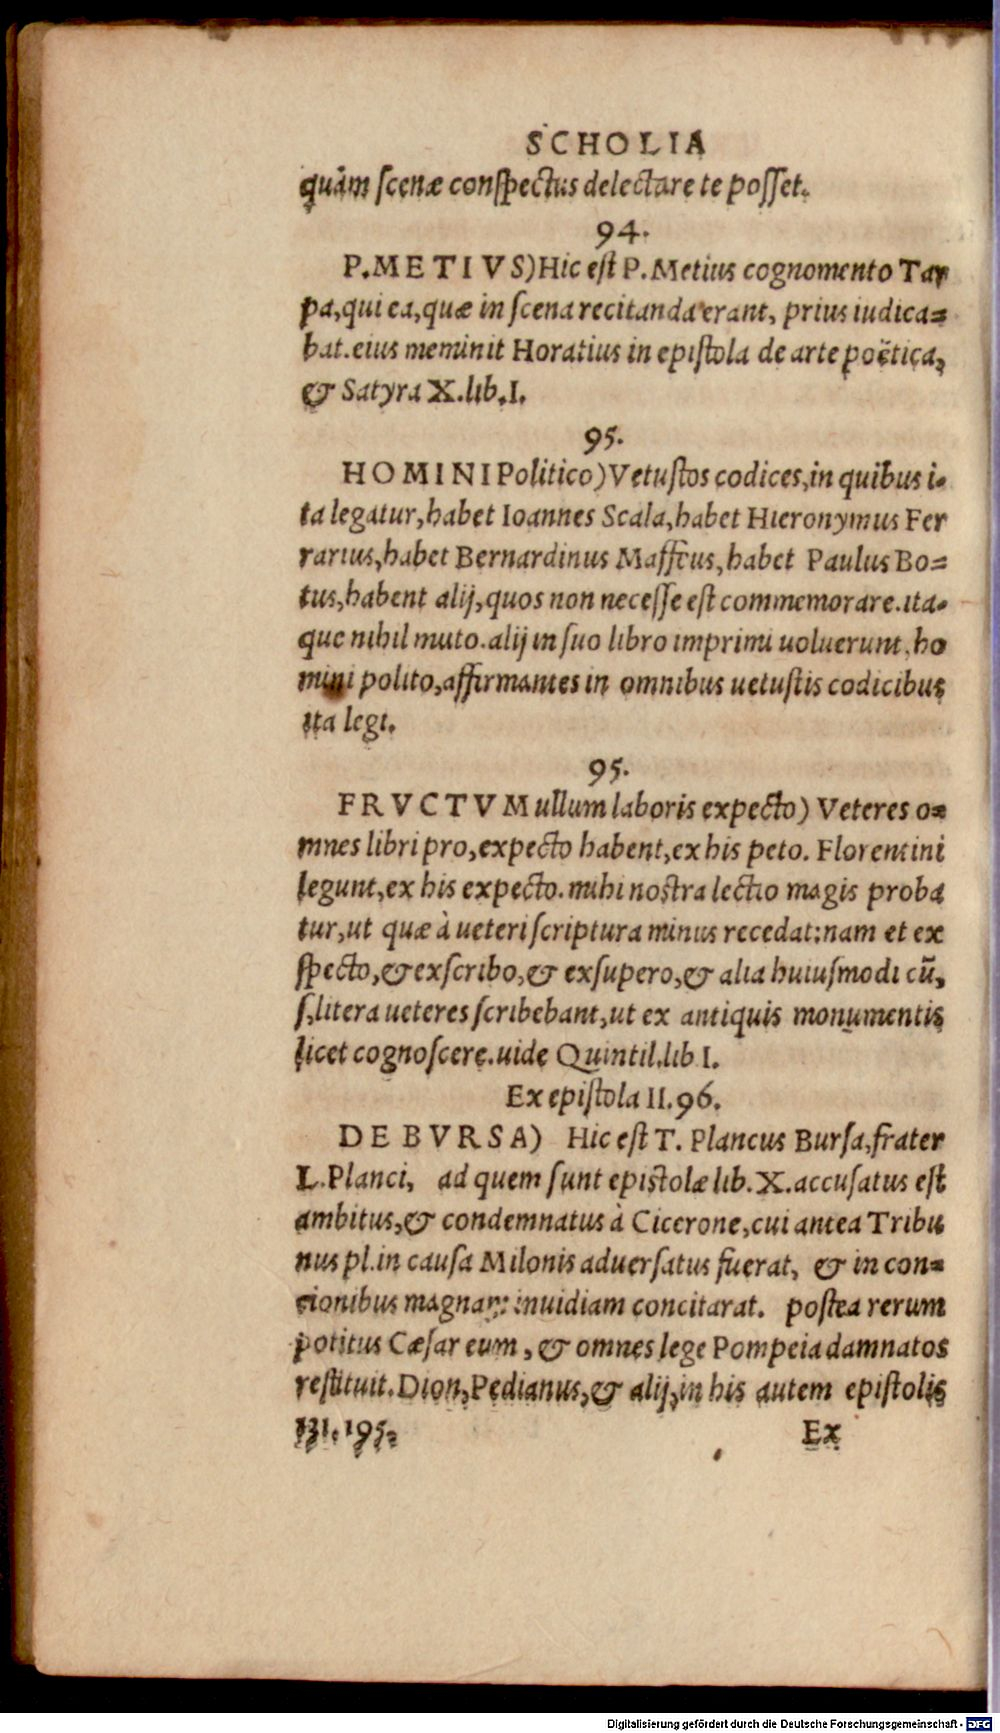 SCHOLIA
quàm scenæ conspectus delectare te posset.
94.
P. METIVS) Hic est P. Metius cognomento Tar
pa, qui ea, quæ in scena recitanda erant, prius iudica=
bat. eius meminit Horatius in epistola de arte poëtica,
& Satyra X. lib. I.
95.
HOMINI Politico) Vetustos codices, in quibus i-
ta legatur, habet Ioannes Scala, habet Hieronymus Fer
rarius, habet Bernardinus Maffeus, habet Paulus Bo=
tus, habent alij, quos non necesse est commemorare. ita-
que nihil muto. alij in suo libro imprimi uoluerunt, ho
mini polito, affirmantes in omnibus uetustis codicibus
ita legi.
95.
FRVCTVM ullum laboris expecto) Veteres o=
mnes libri pro, expecto habent, ex his peto. Florentini
legunt, ex his expecto. mihi nostra lectio magis proba
tur, ut quæ à ueteri scriptura minus recedat: nam et ex
specto, & exscribo, & exsupero, & alia huiusmodi cū,
s, litera ueteres scribebant, ut ex antiquis monumentis
licet cognoscere. uide Quintil. lib I.
Ex epistola II. 96.
DE BVRSA) Hic est T. Plancus Bursa, frater
L. Planci, ad quem sunt epistolæ lib. X. accusatus est
ambitus, & condemnatus à Cicerone, cui antea Tribu
nus pl. in causa Milonis aduersatus fuerat, & in con=
cionibus magnam inuidiam concitarat. postea rerum
potitus Cæsar eum, & omnes lege Pompeia damnatos
restituit. Dion, Pedianus, & alij, in his autem epistolis
131. 195.
Ex
Digitalisierung gefördert durch die Deutsche Forschungsgemeinschaft - DFG